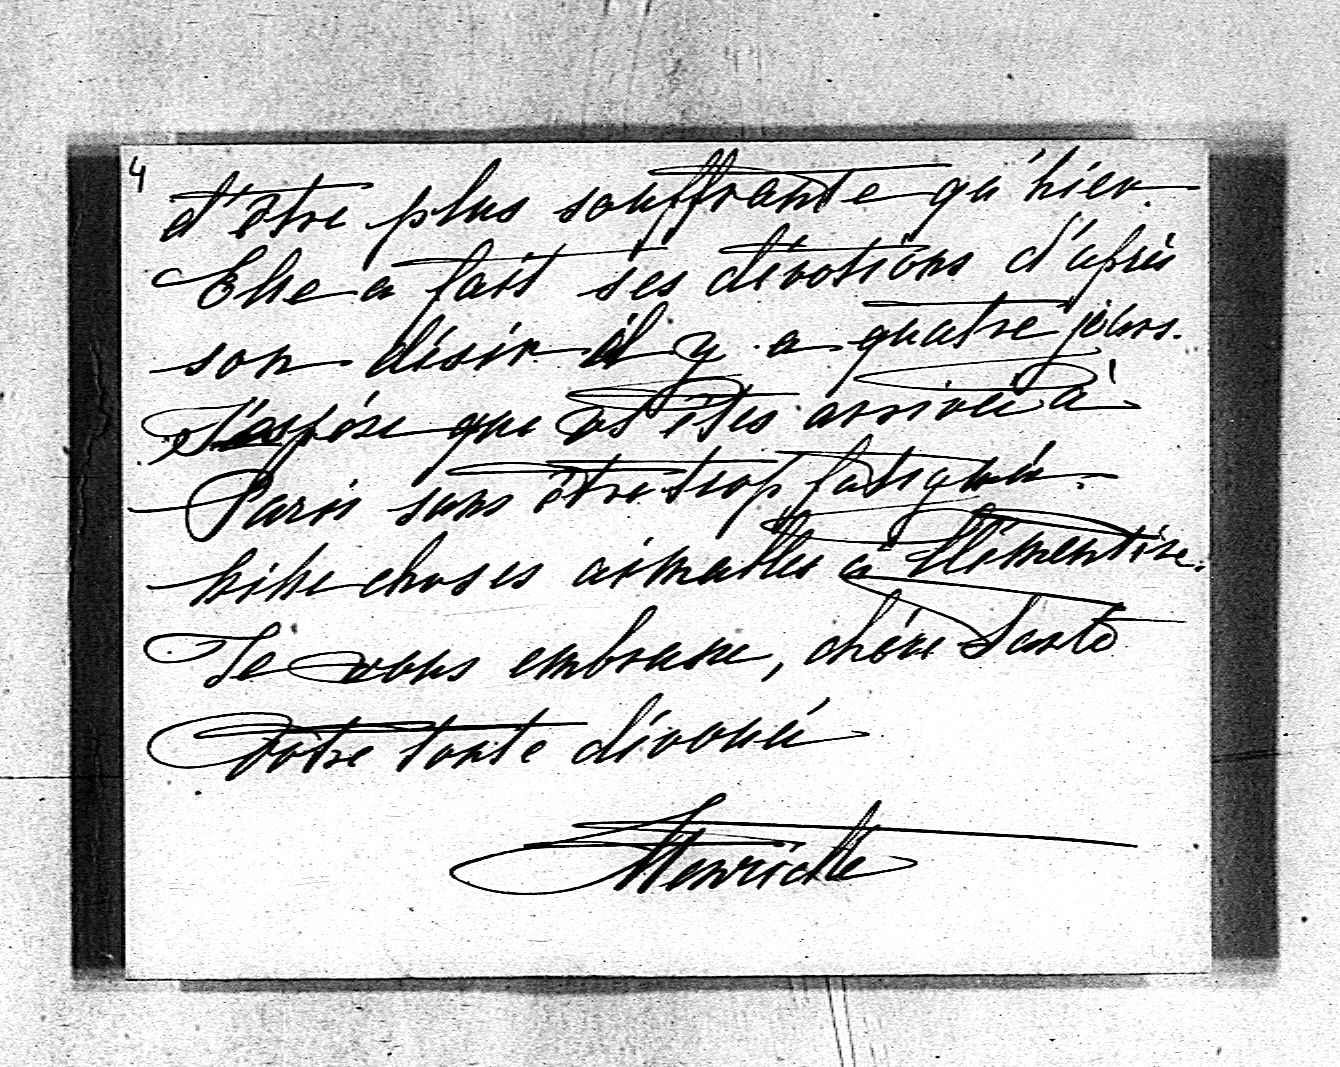 4
d'être plus souffrante qu'hier.
Elle a fait ses dévotions d'après
son désir il y a quatre jours.
J'espère que vs êtes arrivée à
Paris sans être trop fatiguée.
Mille choses aimables à Clémentine.
Je vous embrasse, chère
Votre tante dévouée
Henriette